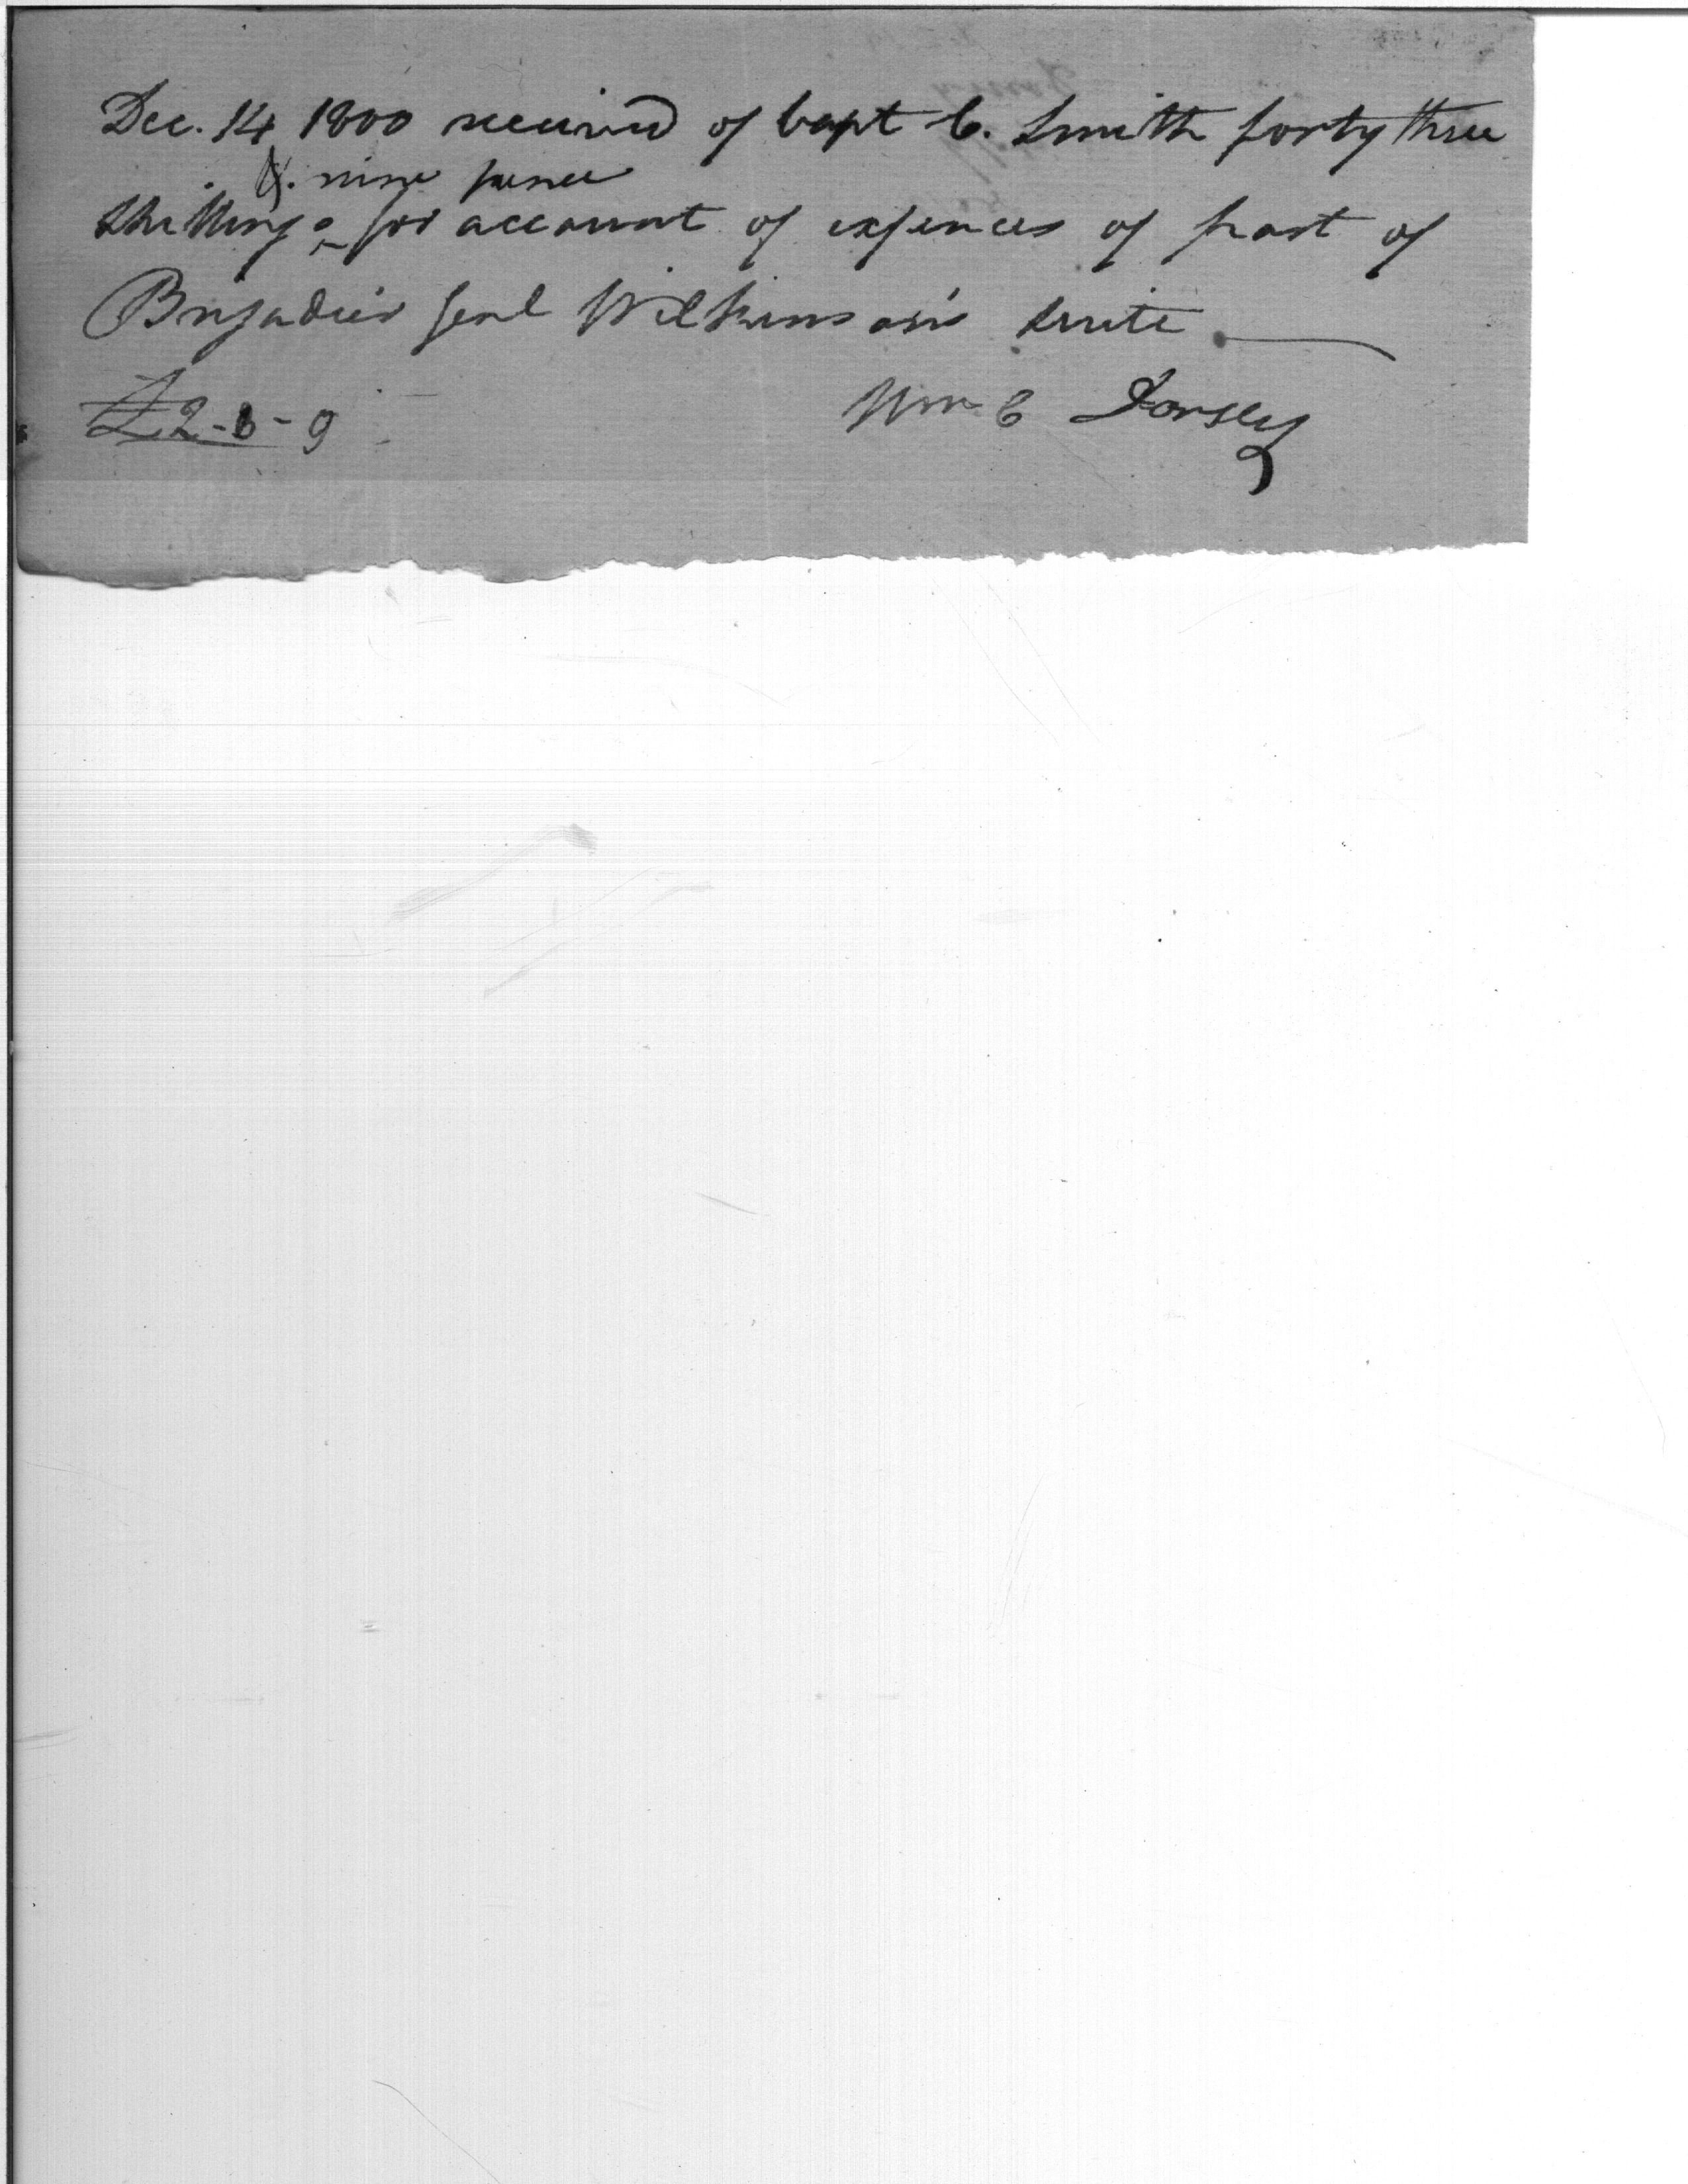 Dec. 14 1800 received of Capt C. Smith forty three
& nine pence
shillings for account of expences of part of
Brigadier Genl Wilkinson's suite
£2-3-9
Wm C Dorsey